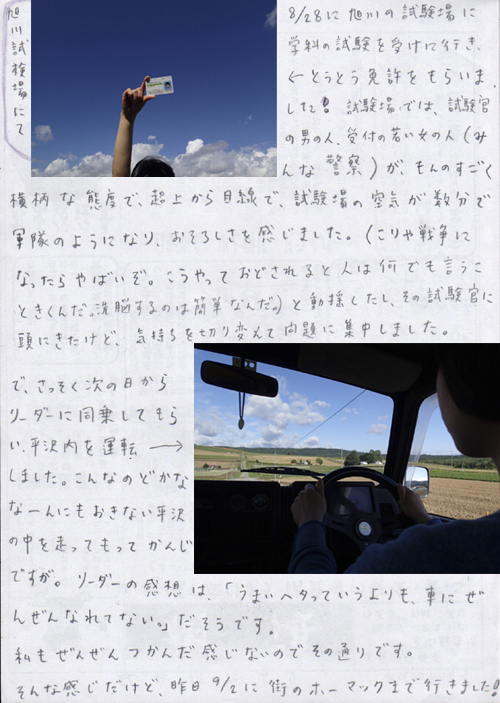 旭川試検場にて
8/28に旭川の試験場に
学科の試験を受けに行き、
←とうとう免許をもらいま
した! 試験場では、試験官
の男の人、受付の若い女の人(み
んな警察)が、ものすごく
横柄な態度で、超上から目線で、試験場の空気が数分で
軍隊のようになり、おそろしさを感じました。(こりゃ戦争に
なったらやばいぞ。こうやっておどされると人は何でも言うこ
ときくんだ。洗脳するのは簡単なんだ。)と動揺したし、その試験官に
頭にきたけど、気持ちを切り変えて問題に集中しました。
で、さっそく次の日から
リーダーに同乗してもら
い、平沢内を運転 →
しました。こんなのどかな
なーんにもおきない平沢
の中を走ってもってかんじ
ですが。リーダーの感想は、「うまいヘタっていうよりも、車にぜ
んぜんなれてない。」だそうです。
私もぜんぜんつかんだ感じないのでその通りです。
そんな感じだけど、昨日9/2に街のホーマックまで行きました!